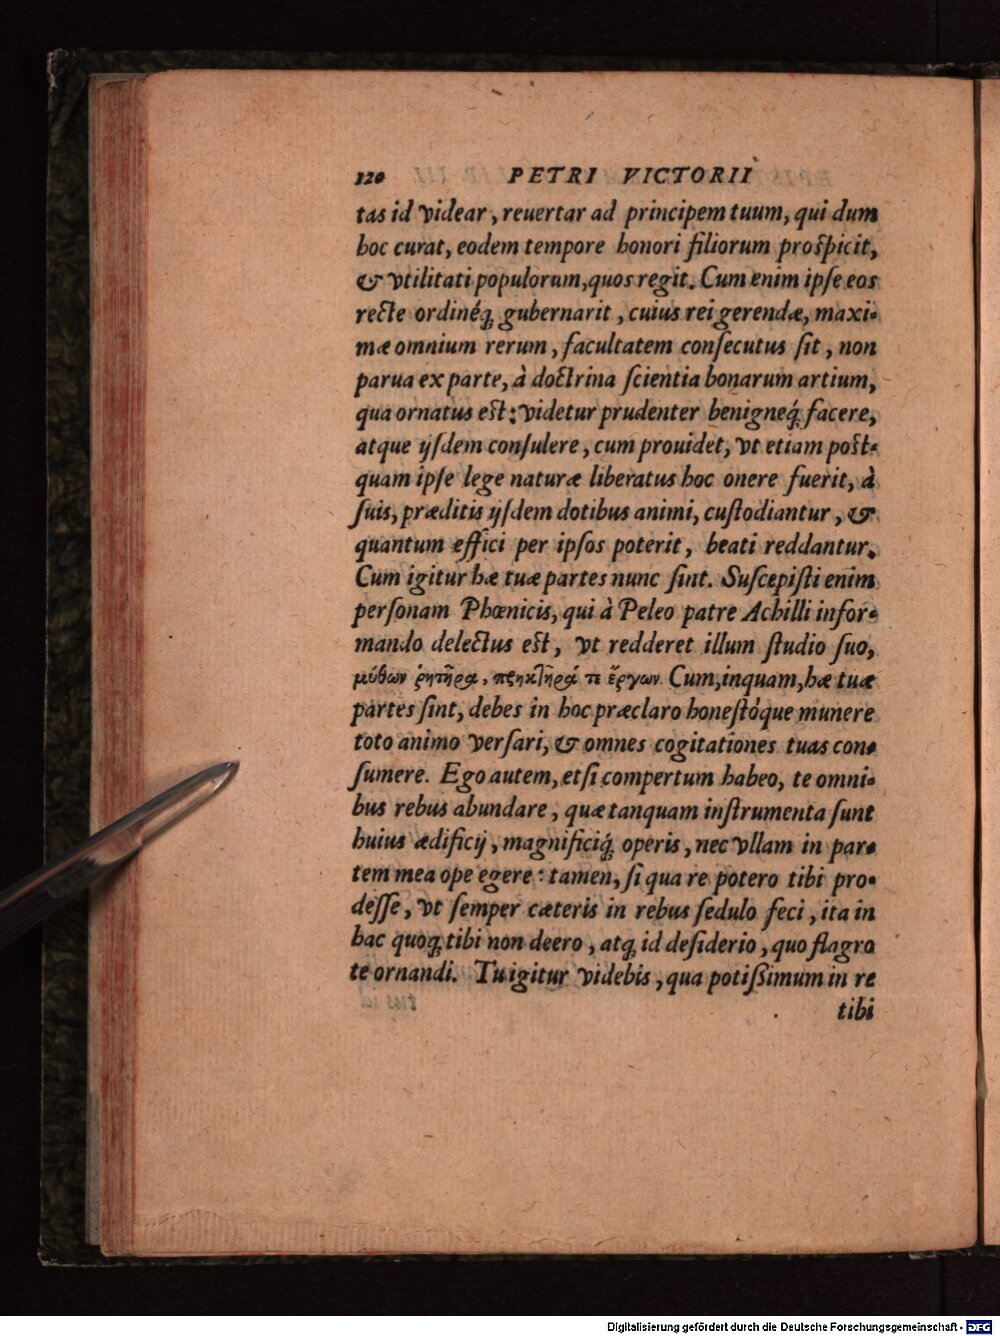 120 PETRI VICTORII
tas id videar, reuertar ad principem tuum, qui dum
hoc curat, eodem tempore honori filiorum prospicit,
& vtilitati populorum, quos regit. Cum enim ipse eos
recte ordinéq; gubernarit, cuius rei gerendæ, maxi-
mæ omnium rerum, facultatem consecutus sit, non
parua ex parte, à doctrina scientia bonarum artium,
qua ornatus est: videtur prudenter benigneq́; facere,
atque ijsdem consulere, cum prouidet, vt etiam post-
quam ipse lege naturæ liberatus hoc onere fuerit, à
suis, præditis ijsdem dotibus animi, custodiantur, &
quantum effici per ipsos poterit, beati reddantur.
Cum igitur hæ tuæ partes nunc sint. Suscepisti enim
personam Phœnicis, qui à Peleo patre Achilli infor-
mando delectus est, vt redderet illum studio suo,
μύθων ῥητῆρα, πρηκτῆρά τε ἔργων. Cum, inquam, hæ tuæ
partes sint, debes in hoc præclaro honestóque munere
toto animo versari, & omnes cogitationes tuas con-
sumere. Ego autem, etsi compertum habeo, te omni-
bus rebus abundare, quæ tanquam instrumenta sunt
huius ædificij, magnificiq́; operis, nec vllam in par-
tem mea ope egere: tamen, si qua re potero tibi pro-
desse, vt semper cæteris in rebus sedulo feci, ita in
hac quoq; tibi non deero, atq; id desiderio, quo flagro
te ornandi. Tu igitur videbis, qua potissimum in re
tibi
Digitalisierung gefördert durch die Deutsche Forschungsgemeinschaft - DFG